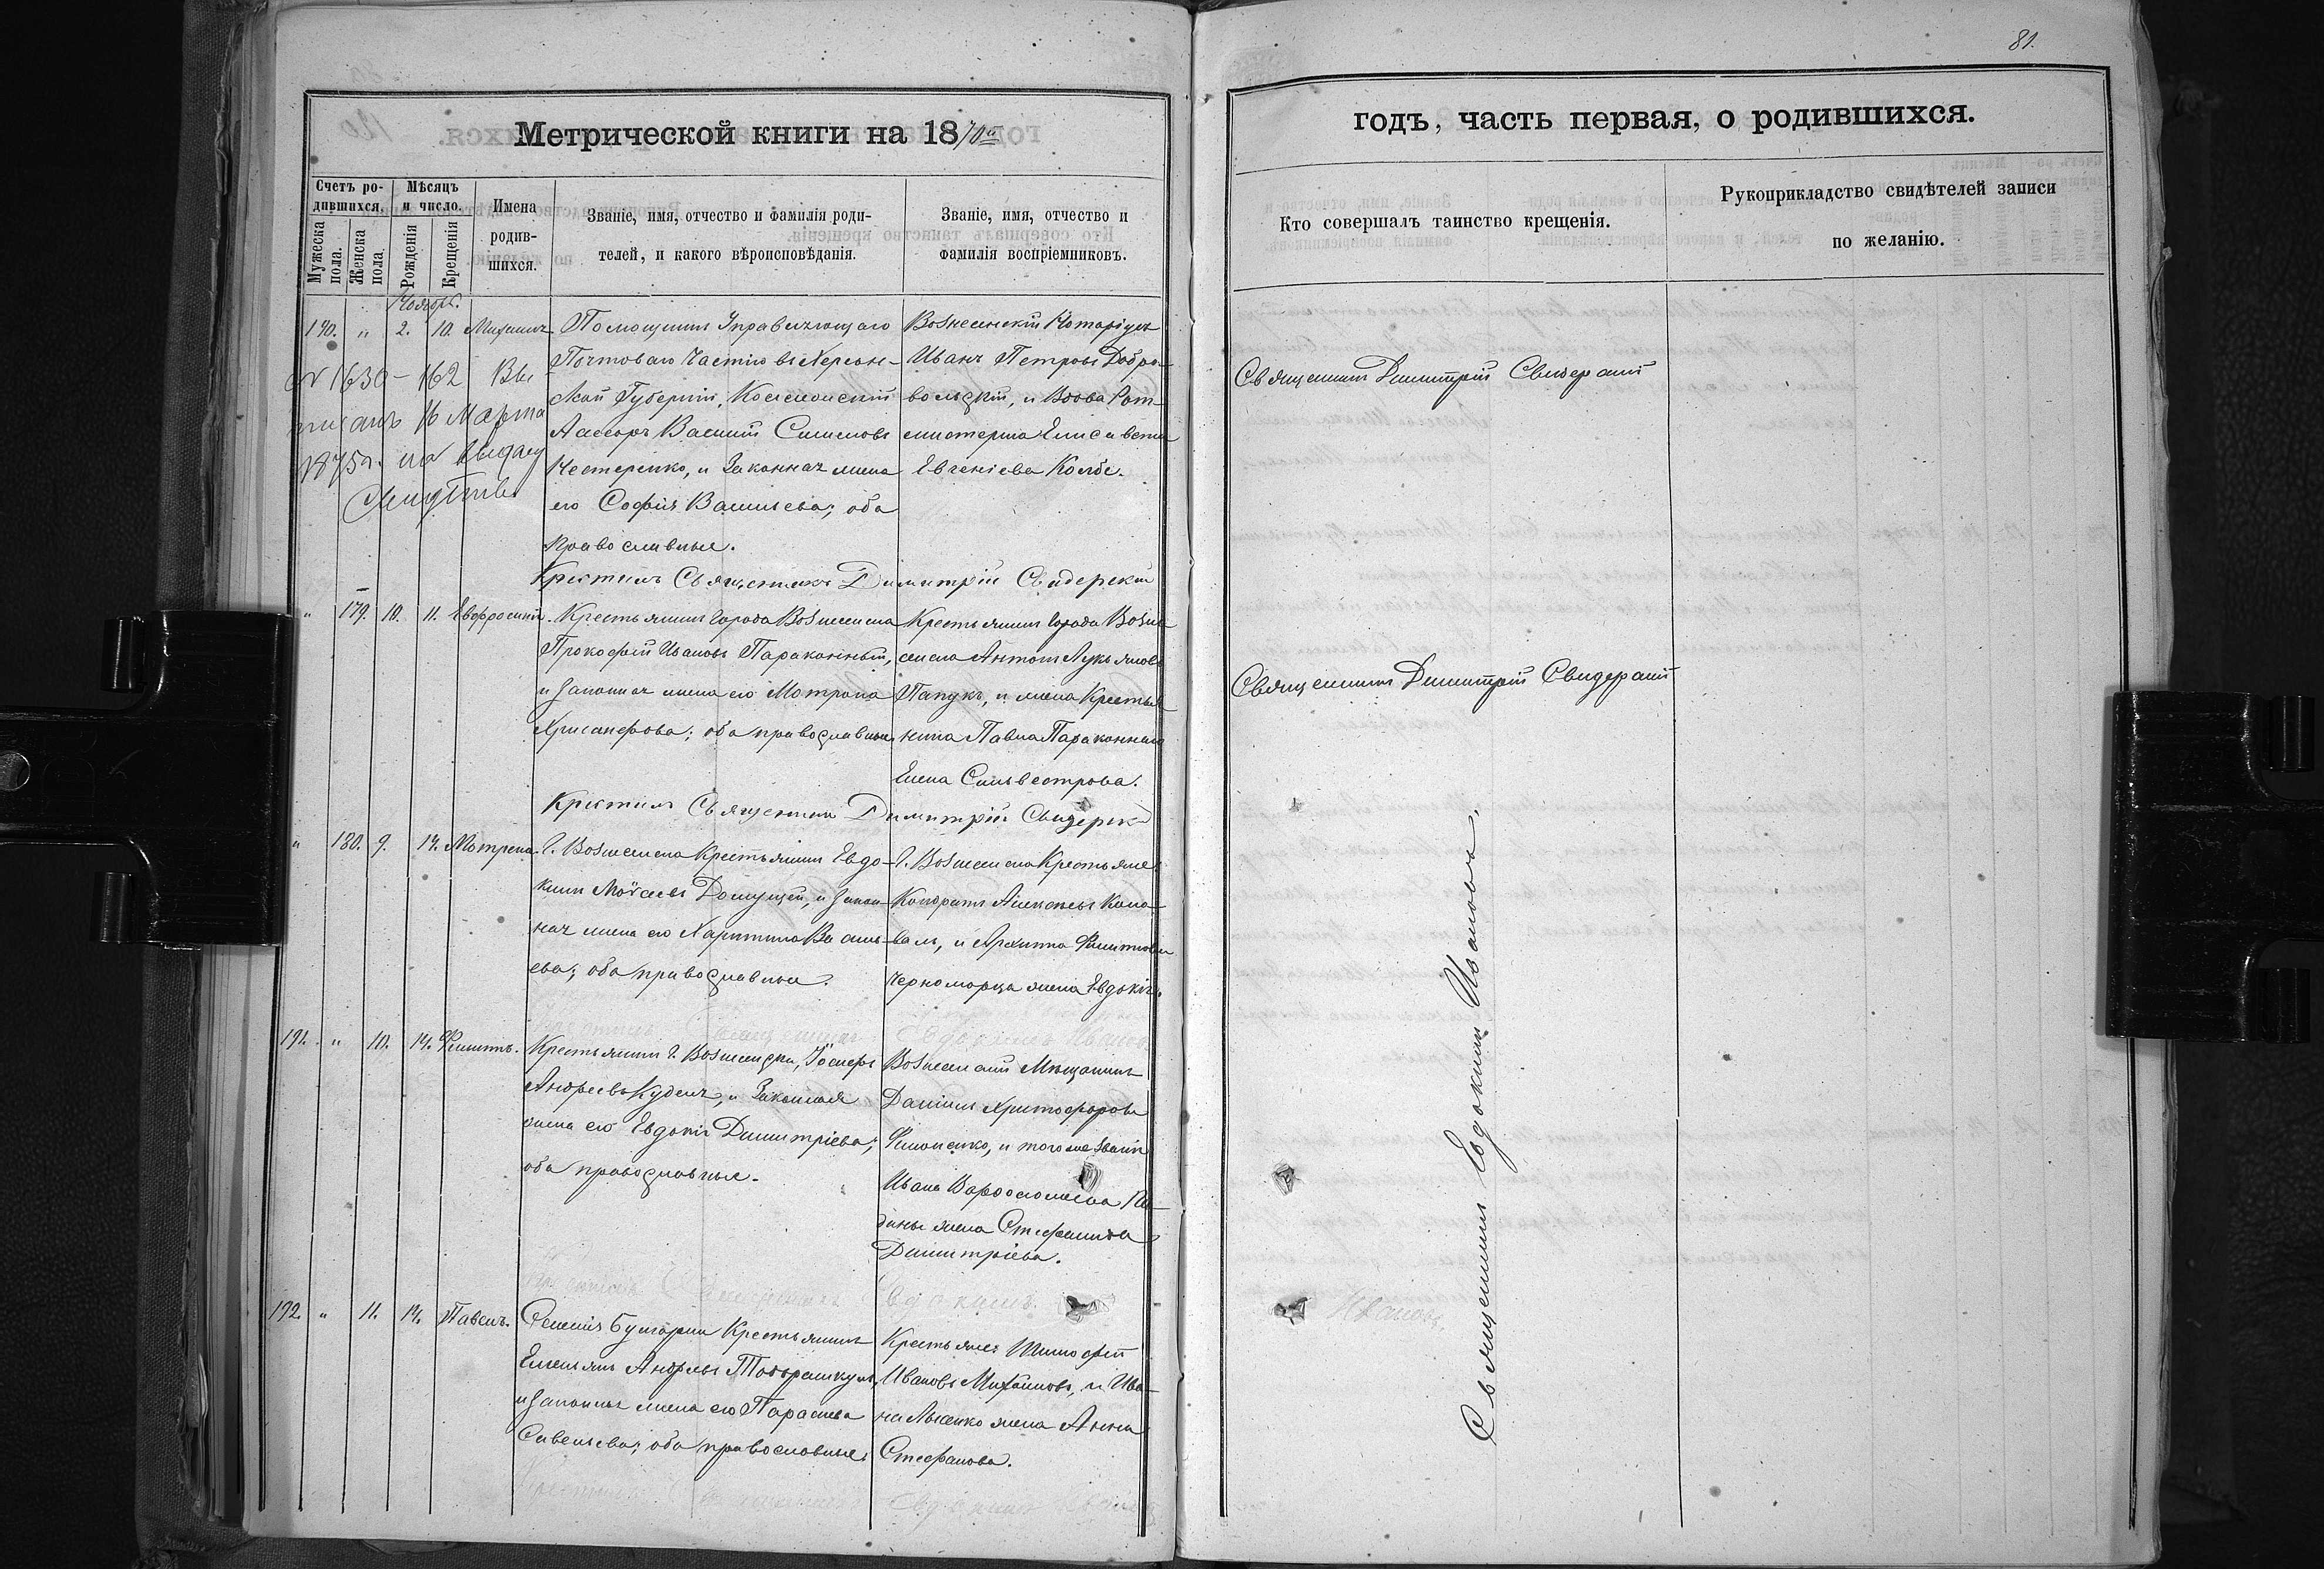 81.
Метрической книги на 1870й
годъ, часть первая, о родившихся.
Счетъ родившихся.
Мужеска пола.
Женска пола.
Мѣсяцъ и число.
Рожденія
Крещенія
Имена родившихся.
Званіе, имя, отчество и фамилія родителей, и какого вѣроисповѣданія.
Званіе, имя, отчество и фамилія воспріемниковъ.
Кто совершалъ таинство крещенія.
Рукоприкладство свидѣтелей записи по желанію.
Ноябрь.
190. " 2. 10. Михаилъ
Помощникъ Управляющаго
Почтовою Частію въ Херсон-
ской Губерніи, Коллежскій
Ассесоръ Василій Симеоновъ
Нестеренко, и Законная жена
его Софія Васильева; оба
православные.
Вознесенскій Нотаріусъ
Иванъ Петровъ Добро-
вольскій, и Вдова Рот-
мистерша Елисавета
Евгеніева Колбе.
№ 1630 - 162 Вы
писанъ 16 Марта
1875 г. на выдачу
Свидѣтель
Крестилъ Священникъ Димитрій Свидерскій
Священникъ Димитрій Свидерскій
" 179. 10. 11. Евфросинія.
Крестьянинъ города Вознесенска
Прокофій Ивановъ Параконный,
и законная жена его Мотрона
Хрисанфова; оба православные
Крестьянинъ города Возне-
сенска Антонъ Лукьяновъ
Папукъ, и жена Крестья-
нина Павла Параконнаго
Елена Сильвестрова.
Крестилъ Священникъ Димитрій Свидерскій
Священникъ Димитрій Свидерскій
" 180. 9. 14. Мотрона.
Г. Вознесенска Крестьянинъ Евдо-
кимъ Моѵсеевъ , и закон-
ная жена его Харитина Василь-
ева; оба православные.
Г. Вознесенска Крестьяне:
Кондратъ Алексѣевъ Коно-
валъ, и Архипа Филиппова
Черноморца жена Евдокія.
191. " 10. 14. Филиппъ.
Крестьянинъ г. Вознесенска, Іосифъ
Андреевъ , и Законная
жена его Евдокія Димитріева;
оба православные.
Вознесенскій Мѣщанинъ
Даніилъ Христофоровъ
, и того же званія
Ивана Варфоломеева
жена Стефанида
Димитріева.
192. " 11. 14. Павелъ.
Селенія Булгарки Крестьянинъ
Емельянъ Андреевъ ,
и законная жена его Параскева
Савельева; оба православные.
Крестьяне: Тимофей
Ивановъ Михайловъ, и Ива-
на Лысенко жена Анна
Стефанова.
Священникъ Евдокимъ Ивановъ.